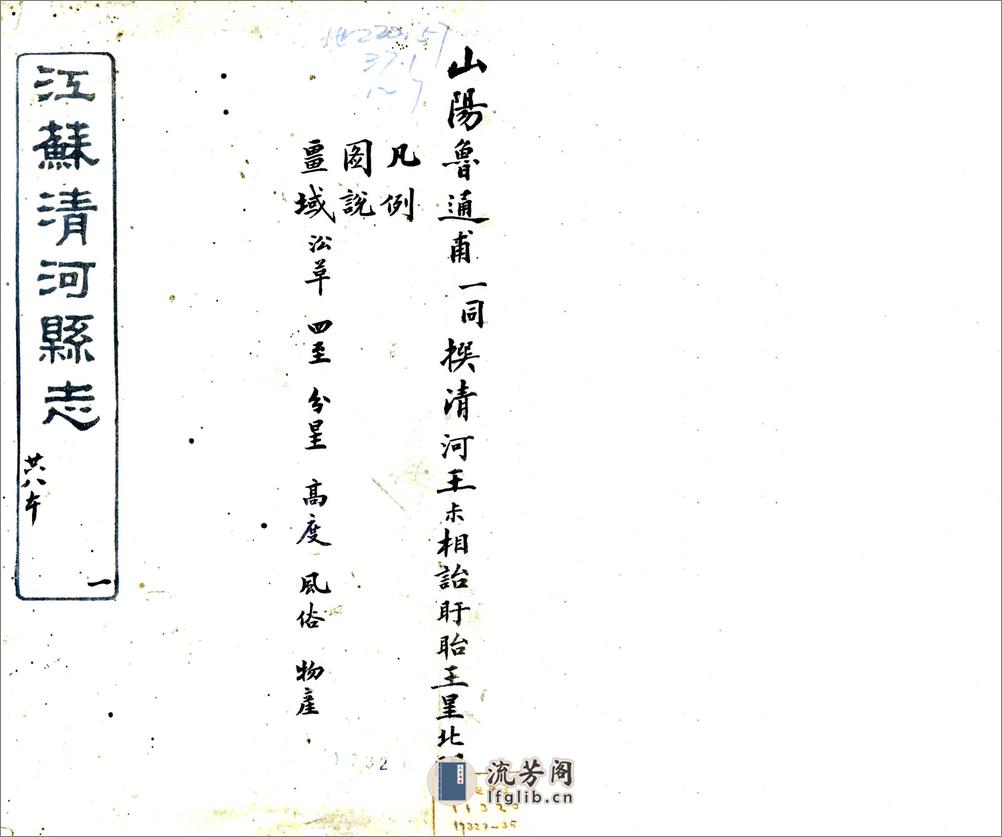 山陽魯通甫一同撰清河王未相詒盱眙王星北
凡例
圖說
畺域 沿革 四至 分星 高度 風俗 物產
江蘇清河縣志
共八本
一
流芳阁
lfglib.cn
17327-35